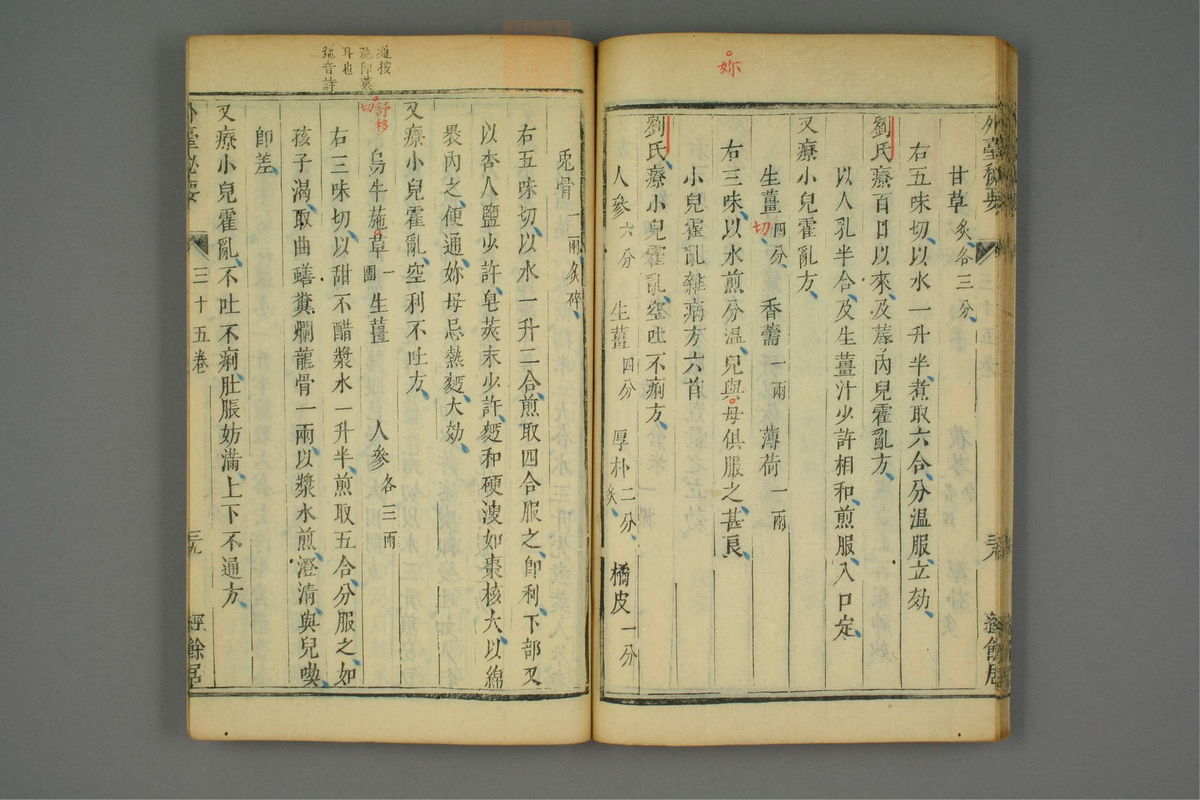 妳
甘草炙各三分
右五味切以水一升半煮取六合分溫服立効
劉氏療百日以來及蓐內兒霍亂方
以人乳半合及生薑汁少許相和煎服入口定
又療小兒霍亂方
生薑四分切 香薷一兩 薄荷一兩
右三味以水煎分溫兒與母俱服之甚良
小兒霍亂雜病方六首
劉氏療小兒霍亂空吐不痢方
人參六分 生薑四分 厚朴二分炙 橘皮一分
兎骨一兩炙碎
右五味切以水一升二合煎取四合服之卽利下部又
以杏人鹽少許皂莢末少許麪和硬溲如棗核大以綿
褁內之便通妳母忌熱麪大効
又療小兒霍亂空利不吐方
舒移切
烏牛葹草一團 生薑 人參各三兩
右三味切以甜不醋漿水一升半煎取五合分服之如
孩子渴取曲蟮糞爛龍骨一兩以漿水煎澄清與兒喫
卽差
又療小兒霍亂不吐不痢肚脹妨滿上下不通方
外臺秘要 三十五卷 三九 經餘居